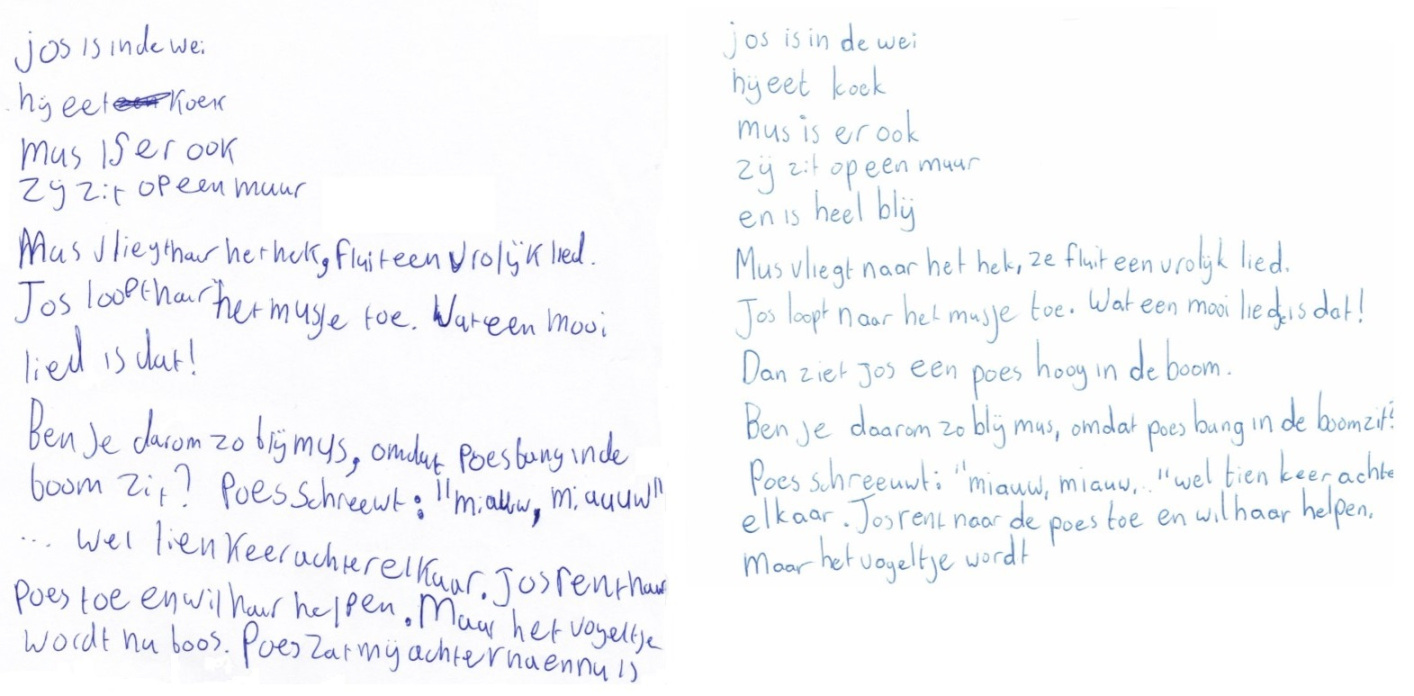 jos is in de wei
hij eet koek
mus is er ook
zij zit op een muur
Mus vliegt naar het hek, fluit een vrolijk lied.
Jos loopt naar het musje toe. Wat een mooi
lied is dat!
Ben je darom zo blij mus, omdat poes bang in de
boom zit? Poes schreewt: "miauw, miauuw"
... wel tien keer achter elkaar. Jos rent naar
poes toe en wil haar helpen. Maar het vogeltje
wordt nu boos. Poes zat mij achterna en nu is
jos is in de wei
hij eet koek
mus is er ook
zij zit op een muur
en is heel blij
Mus vliegt naar het hek, ze fluit een vrolijk lied.
Jos loopt naar het musje toe. Wat een mooi lied is dat!
Dan ziet jos een poes hoog in de boom.
Ben je daarom zo blij mus, omdat poes bang in de boom zit?
Poes schreeuwt: "miauw, miauw,.." wel tien keer achte
elkaar. Jos rent naar de poes toe en wil haar helpen.
Maar het vogeltje wordt